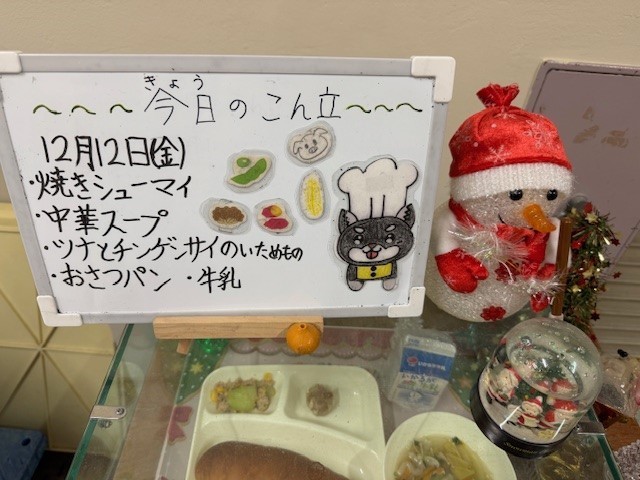 きょう
～～～今日のこん立～～～
12月12日(金)
・焼きシューマイ
・中華スープ
・ツナとチンゲンサイのいためもの
・おさつパン ・牛乳